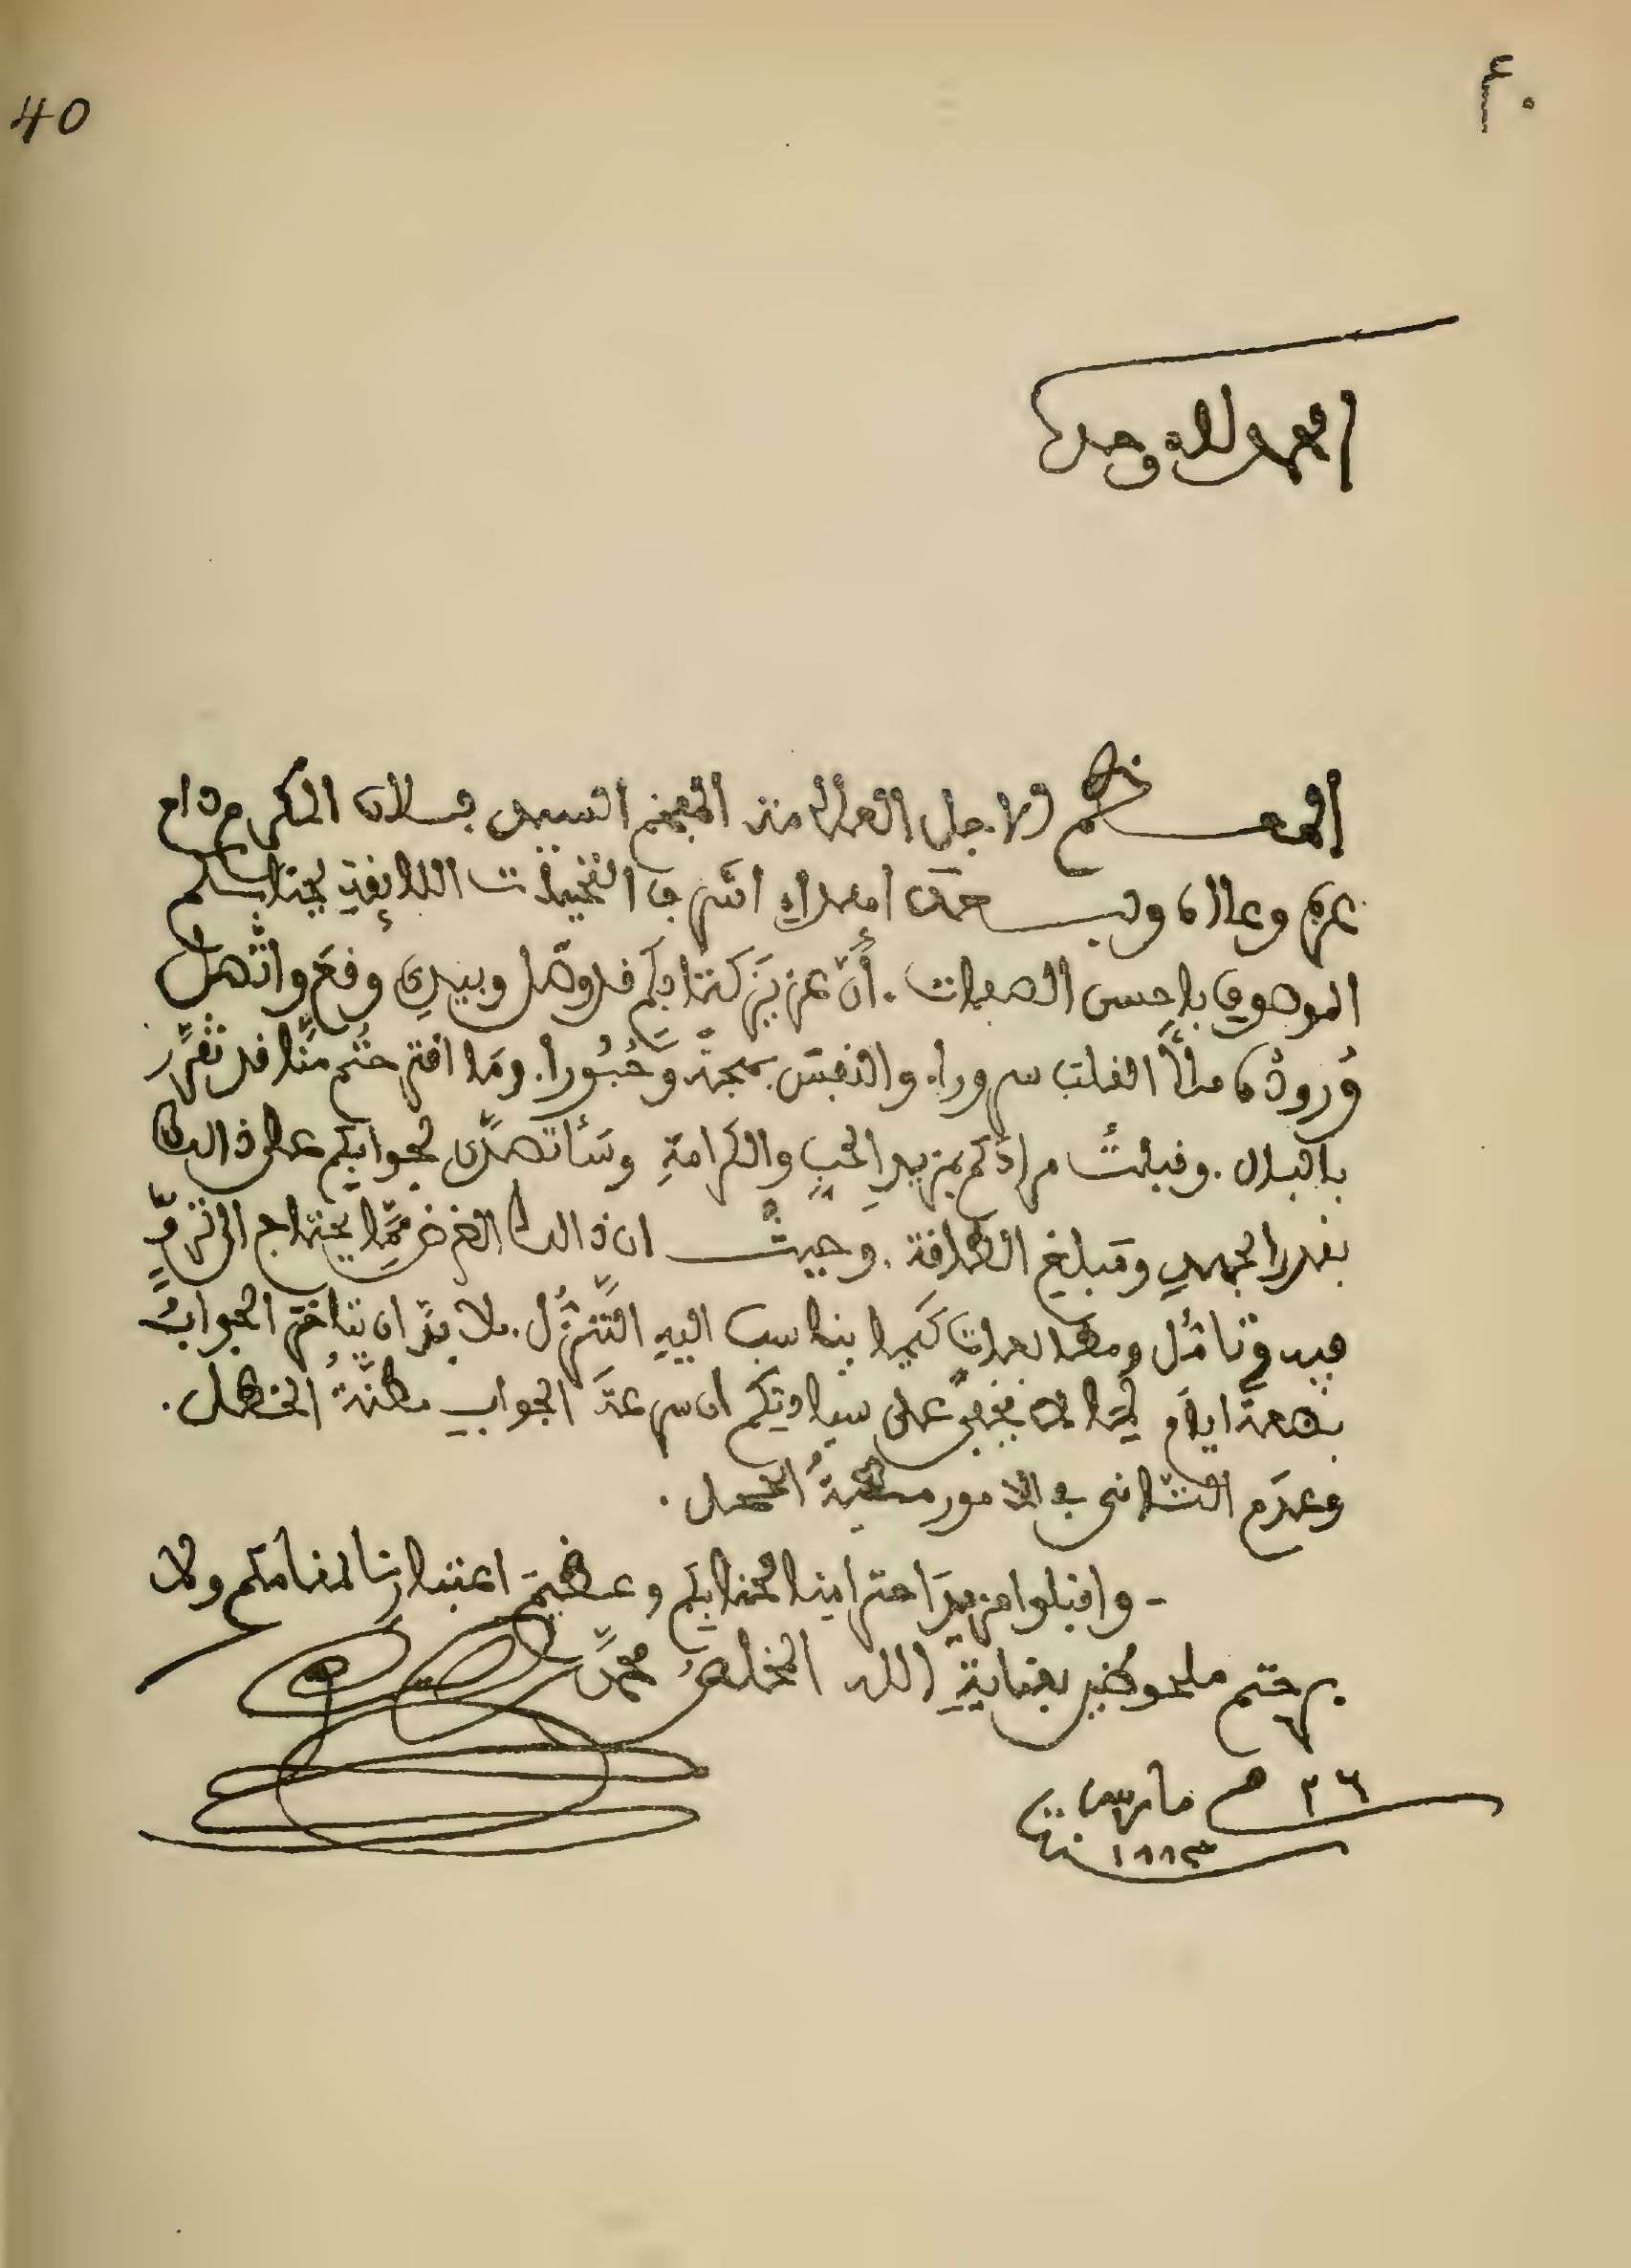 ٤٠
40
الحمد لله وحده
المعظم الاجل العلامة المفخم السيد فلان المكرم دام
عزه وعلاه وبعد اهداء اشرف التحيات اللائقة بجنابكم
الموصوف باحسن الصفات. أنّ عزيز كتابكم قد وصل وبيدي وقع واتّصل
وُرودُه ملأَ القلب سرورا. والنفسَ بهجةً وحُبُورا. وما اقترحتُم منّا قد تقرَّر
بالبال. وقبلتُ مرادَكم بمزيدِ الحبِ والكرامةِ وسأتصدّى لجوابكم على ذالك
بقدر الجهدِ ومَبلغِ الطاقة. وحيثُ ان ذالك الغرض مِمّا يحتاج الى تروٍّ
فيه وتأمُّل ومطالعات كيما يناسب اليهِ التَّنزُّل. فلا بدّ ان يتأخّر الجوابُ
بضعةَ ايام لِما لا يخفى على سيادتكم ان سرعةَ الجوابِ مظنّةُ الخطل.
وعدَم التأنى في الأمور مطيةُ
- واقبلوا مزيدَ احترامنا لجنابِكم وعظيمَ اعتبارنا لمقامكم ولا
برحتم ملحوظين بعنايةِ الله المخلصُ محمّد
٢٦ مارس
سنة ١٨٨٣